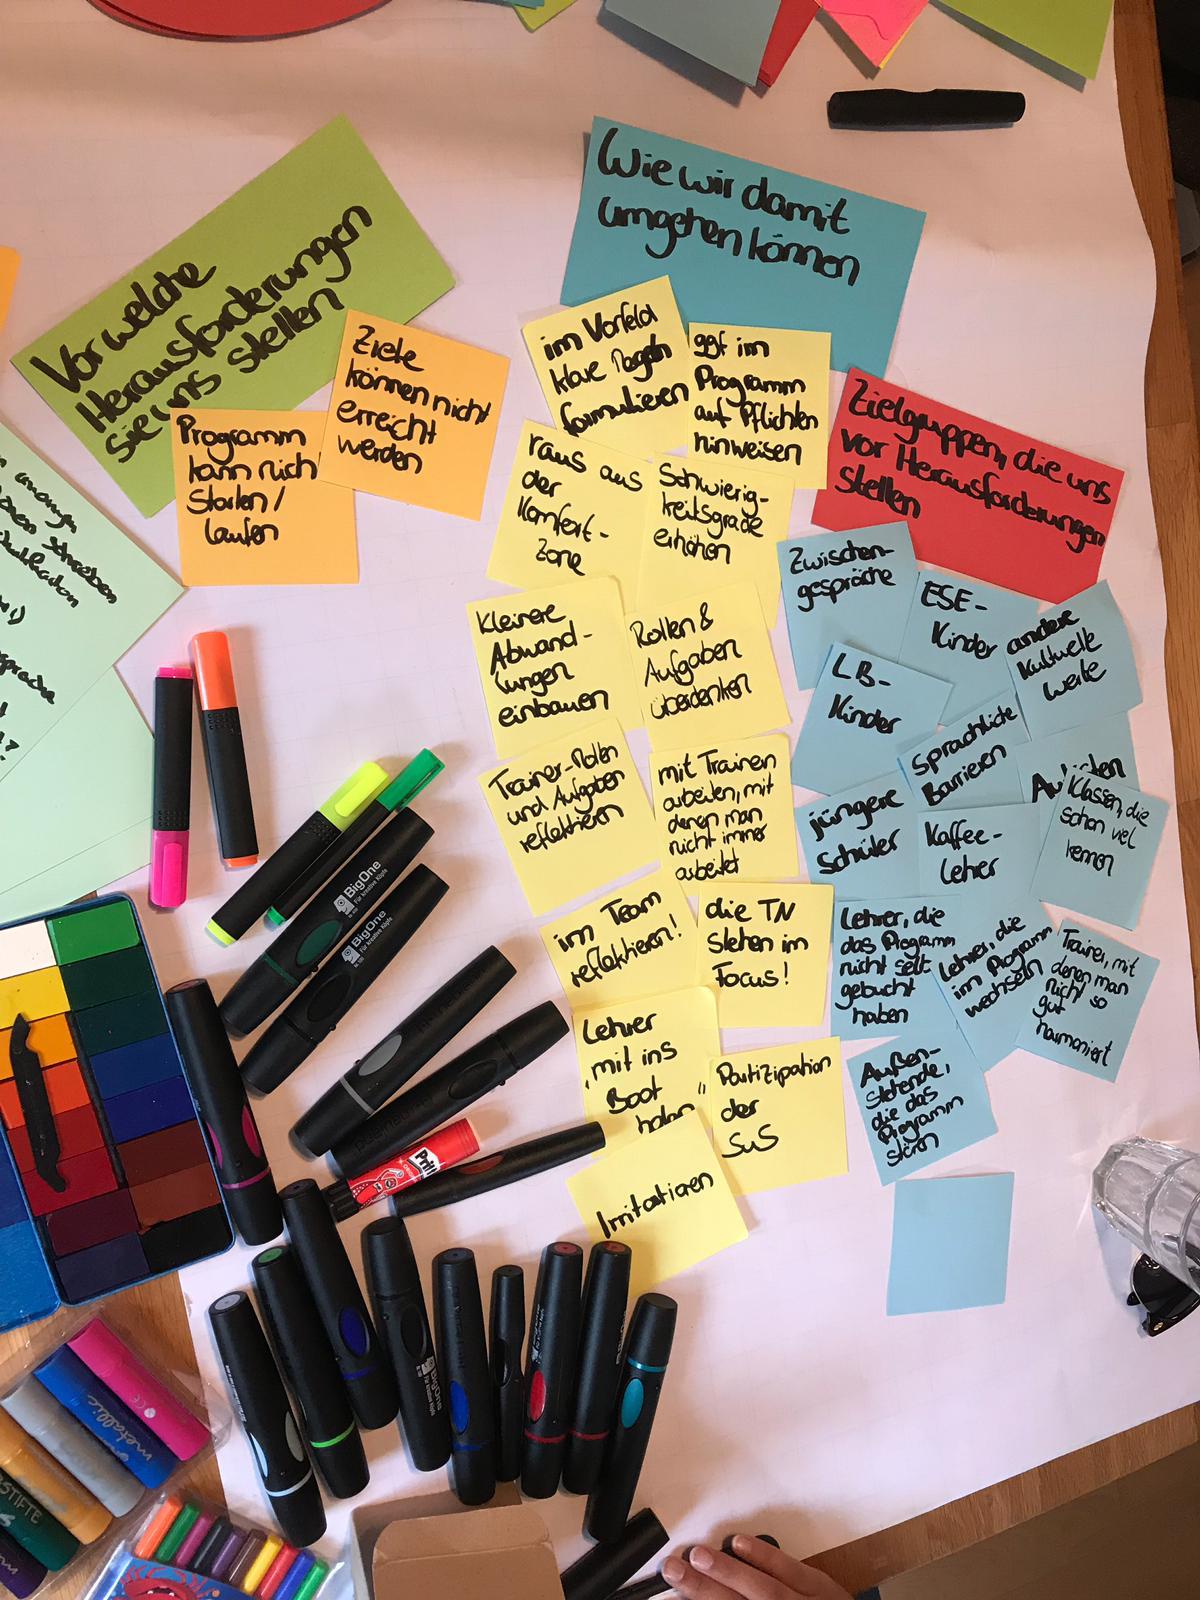 Vor welche
Herausforderungen
sie uns stellen
Programm
kann nich
Starten /
laufen
Ziele
können nicht
erreicht
werden
Wie wir damit
umgehen können
im Vorfeld
klare Regeln
formulieren
ggf im
Programm
auf Pflichten
hinweisen
raus aus
der
Komfort-
Zone
Schwierig-
keitsgrade
erhöhen
Kleinere
Abwand-
lungen
einbauen
Rollen &
Aufgaben
überdenken
Trainer-Rollen
und Aufgaben
reflektieren
mit Trainern
arbeiten, mit
denen man
nicht immer
arbeitet
im Team
reflektieren!
die TN
stehen im
Focus!
Lehrer
"mit ins
Boot
holen"
Partizipation
der
SuS
Irritationen
Zielgruppen, die uns
vor Herausforderungen
stellen
Zwischen-
gespräche
ESE-
Kinder
andere
kulturelle
Werte
LB-
Kinder
Sprachliche
Barrieren
jüngere
Schüler
Kaffee-
lehrer
Klassen, die
schon viel
kennen
Lehrer, die
das Programm
nicht selbt
gebucht
haben
Lehrer, die
im Programm
wechseln
Trainer, mit
denen man
nicht so
gut
harmoniert
Außen-
stehende,
die das
Programm
stören
schreiben
BigOne
Für kreative Köpfe
BigOne
Für kreative Köpfe
Pritt
BigOne
Für kreative Köpfe
metallic
STIFTE